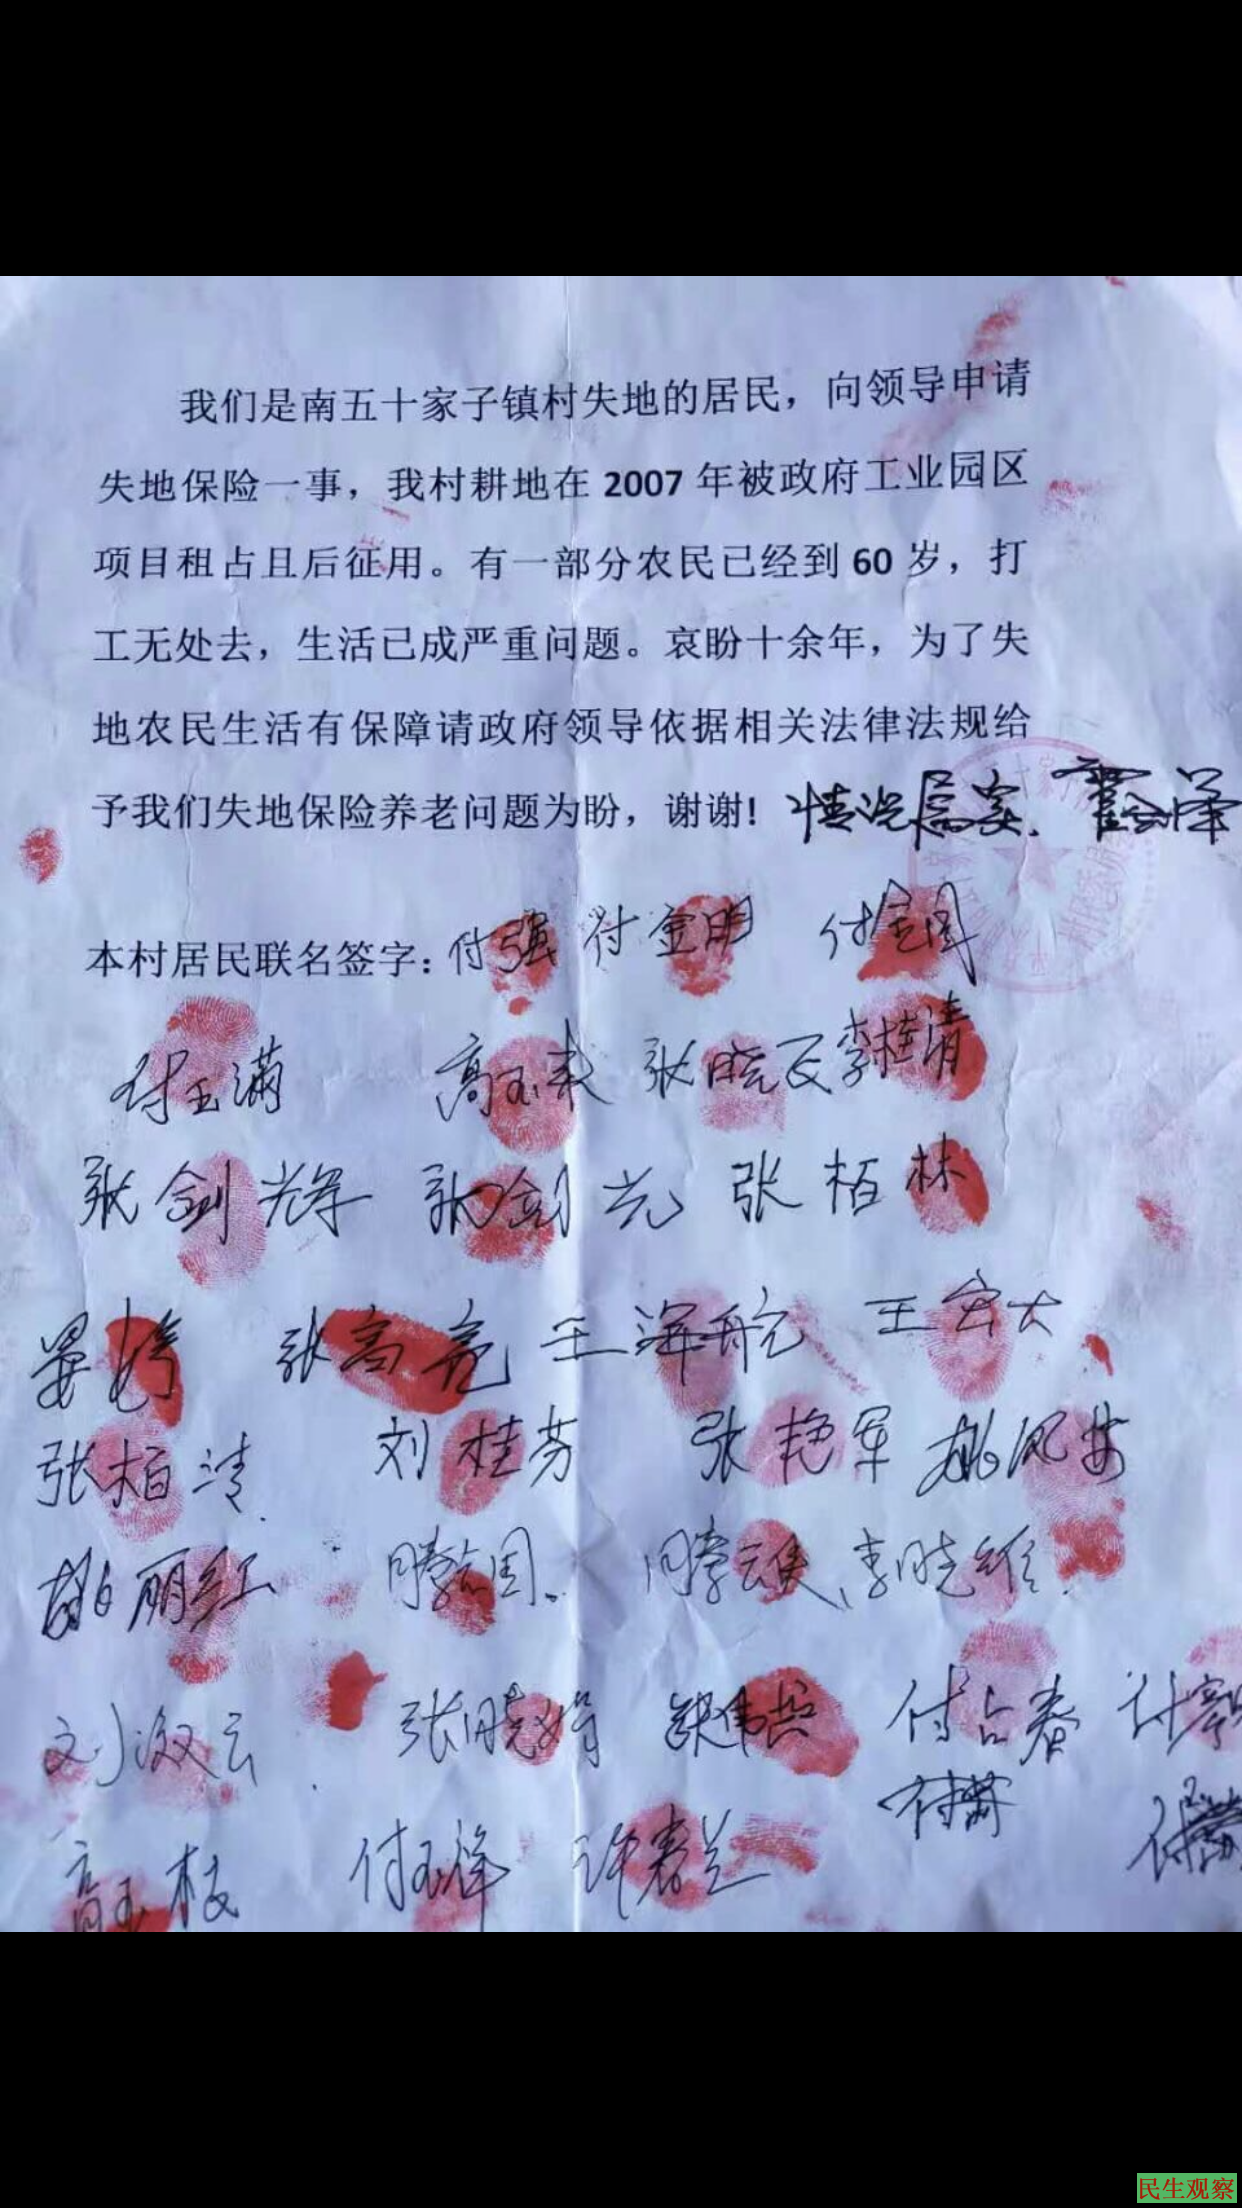 我们是南五十家子镇村失地的居民，向领导申请
失地保险一事，我村耕地在 2007 年被政府工业园区
项目租占且后征用。有一部分农民已经到 60 岁，打
工无处去，生活已成严重问题。哀盼十余年，为了失
地农民生活有保障请政府领导依据相关法律法规给
予我们失地保险养老问题为盼，谢谢! 情况属实.
本村居民联名签字: 付强 付金明 付宝国
付玉满 高玉 张晓 李桂清
张剑辉 张剑光 张栢林
晏 张高亮 王海航 王宏大
张栢清 刘桂芬 张艳军 姚凤
姚丽红 李晓维
刘淑云 张晓娟 伟兵 付占春
付
高玉枝 付玉泽 许春兰
民生观察